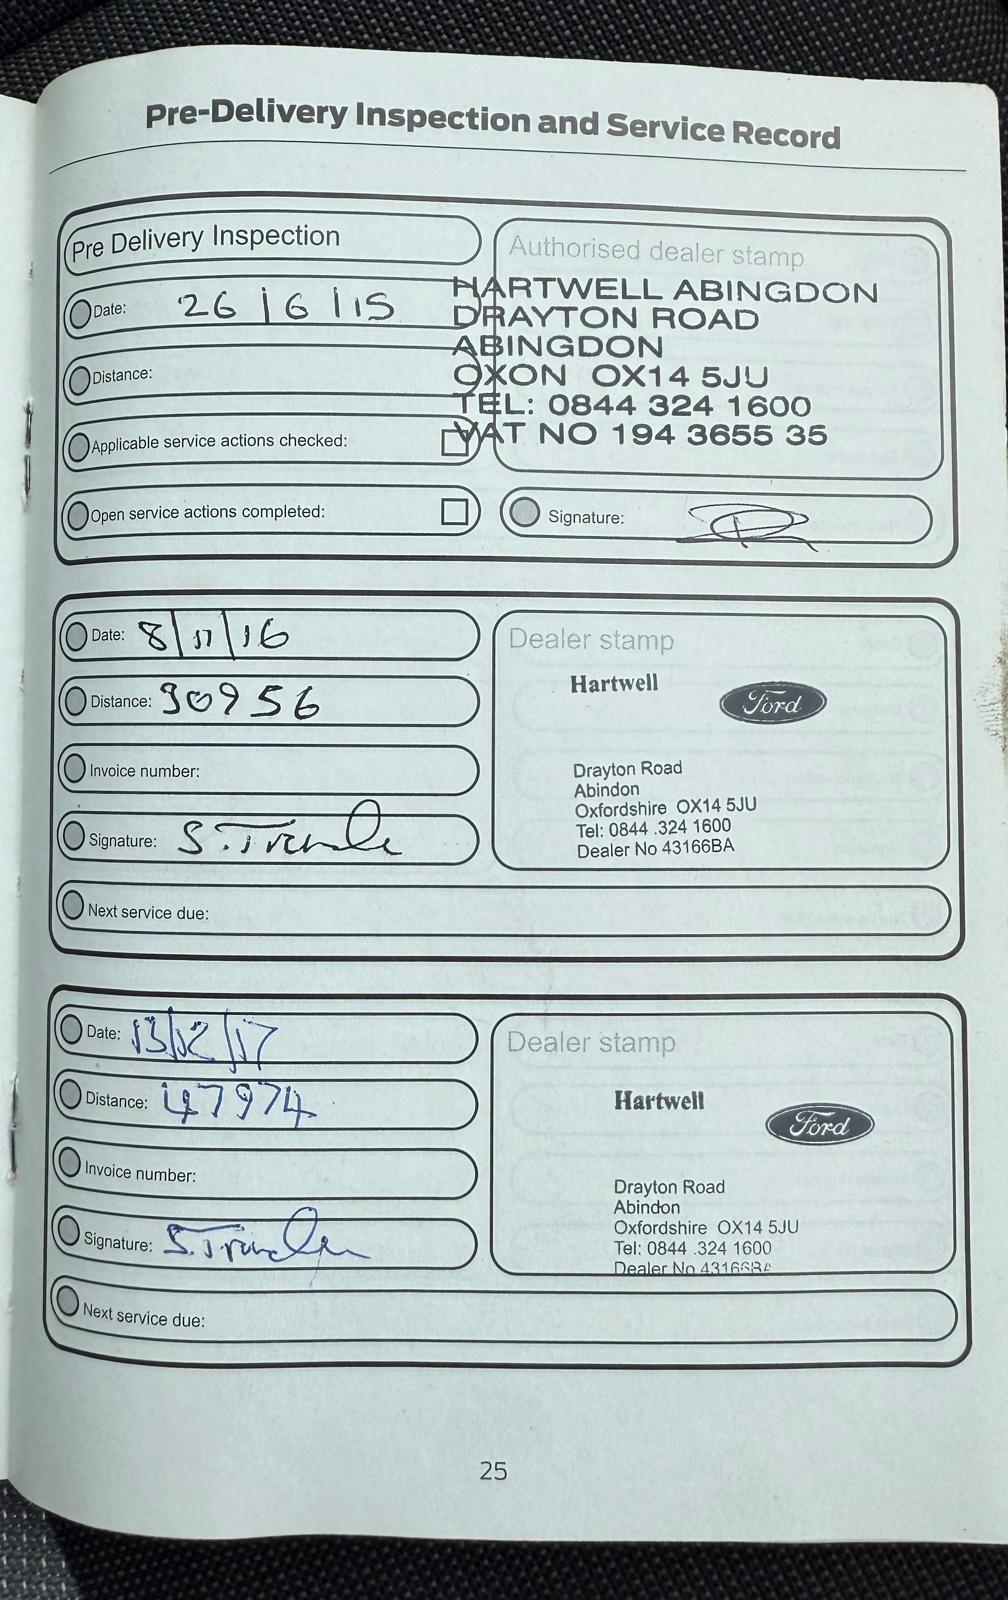 Pre-Delivery Inspection and Service Record
Pre Delivery Inspection
Authorised dealer stamp
HARTWELL ABINGDON
DRAYTON ROAD
ABINGDON
OXON OX14 5JU
TEL: 0844 324 1600
VAT NO 194 3655 35
Date: 26/6/15
Distance:
Applicable service actions checked:
Open service actions completed:
Signature:
Date: 8/11/16
Distance: 30956
Invoice number:
Signature:
Next service due:
Dealer stamp
Hartwell
Ford
Drayton Road
Abindon
Oxfordshire OX14 5JU
Tel: 0844 .324 1600
Dealer No 43166BA
Date: 13/12/17
Distance: 47974
Invoice number:
Signature:
Next service due:
Dealer stamp
Hartwell
Ford
Drayton Road
Abindon
Oxfordshire OX14 5JU
Tel: 0844 .324 1600
Dealer No 43166BA
25